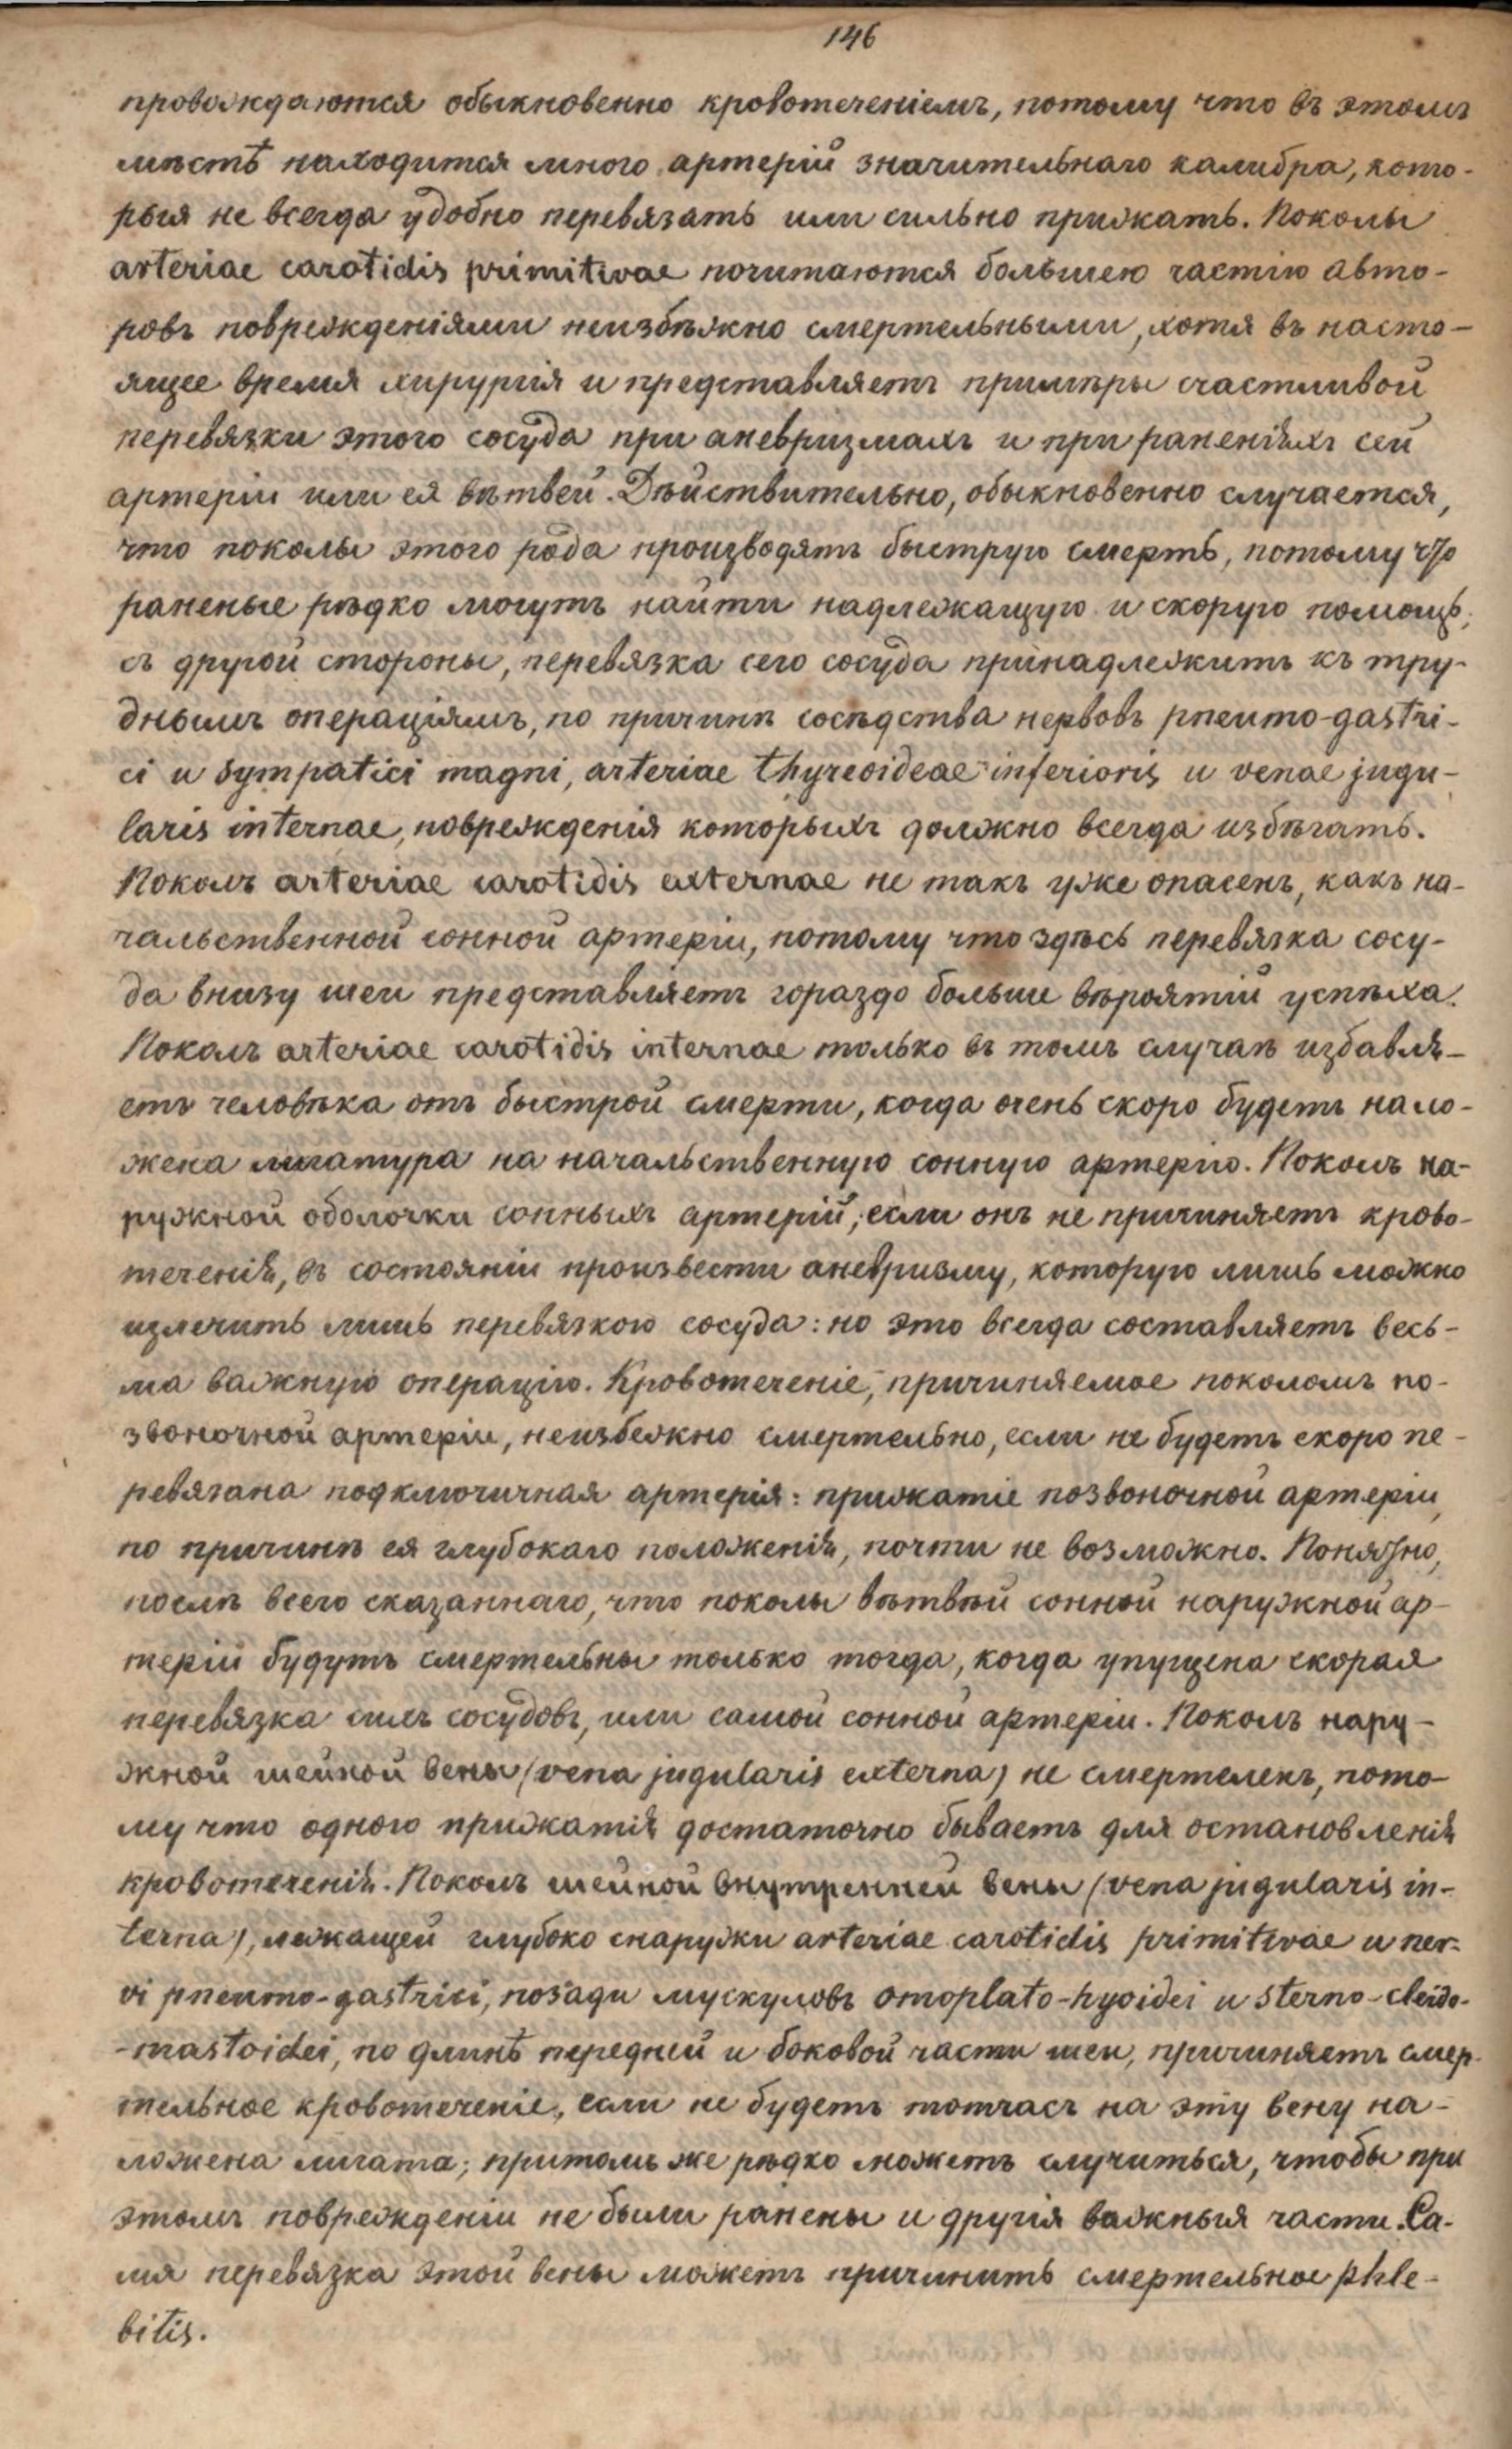 146
провождаются обыкновенно кровотеченіемъ, потому что въ этомъ
мѣстѣ находится много артерій значительнаго калибра, кото-
рыя не всегда удобно перевязать или сильно прижать. Поколы
arteriae carotidis primitivae почитаются большею частію авто-
ровъ поврежденіями неизбѣжно смертельными, хотя въ насто-
ящее время хирургія и представляетъ примѣры счастливой
перевязки этого сосуда при аневризмахъ и при раненіяхъ сей
артеріи или ея вѣтвей. Дѣйствительно, обыкновенно случается,
что поколы этого рода производятъ быструю смерть, потому что
раненые рѣдко могутъ найти надлежащую и скорую помощь;
съ другой стороны, перевязка сего сосуда принадлежитъ къ тру-
днымъ операціямъ, по причинѣ сосѣдства нервовъ pneumo-gastri-
ci и sympatici magni, arteriae thyreoideae inferioris и venae jugu-
laris internae, поврежденія которыхъ должно всегда избѣгать.
Поколъ arteriae carotidis externae не такъ уже опасенъ, какъ на-
чальственной сонной артеріи, потому что здѣсь перевязка сосу-
да внизу шеи представляетъ гораздо больше вѣроятій успѣха.
Поколъ arteriae carotidis internae только въ томъ случаѣ избавля-
етъ человѣка отъ быстрой смерти, когда очень скоро будетъ нало-
жена лигатура на начальственную сонную артерію. Поколъ на-
ружной оболочки сонныхъ артерій, если онъ не причиняетъ крово-
теченія, въ состояніи произвести аневризму, которую лишь можно
излечить лишь перевязкою сосуда: но это всегда составляетъ весь-
ма важную операцію. Кровотеченіе, причиняемое поколомъ по-
звоночной артеріи, неизбежно смертельно, если не будетъ скоро пе-
ревязана подключичная артерія: прижатіе позвоночной артеріи,
по причинѣ ея глубокаго положенія, почти не возможно. Понятно,
послѣ всего сказаннаго, что поколы вѣтвѣй сонной наружной ар-
терій будутъ смертельны только тогда, когда упущена скорая
перевязка сихъ сосудовъ, или самой сонной артеріи. Поколъ нару-
жной шейной вены (vena jugularis externa) не смертеленъ, пото-
му что одного прижатія достаточно бываетъ для остановленія
кровотеченія. Поколъ шейной внутренней вены (vena jugularis in-
terna), лежащей глубоко снаружи arteriae carotidis primitivae и ner-
vi pneumo-gastrici, позади мускуловъ omoplato-hyoidei и sterno-cleido-
-mastoidei, по длинѣ передней и боковой части шеи, причиняетъ смер-
тельное кровотеченіе, если не будетъ тотчасъ на эту вену на-
ложена лигата; притомъ же рѣдко можетъ случиться, чтобы при
этомъ поврежденіи не были ранены и другія важныя части. Са-
мя перевязка этой вены можетъ причинить смертельное phle-
bitis.